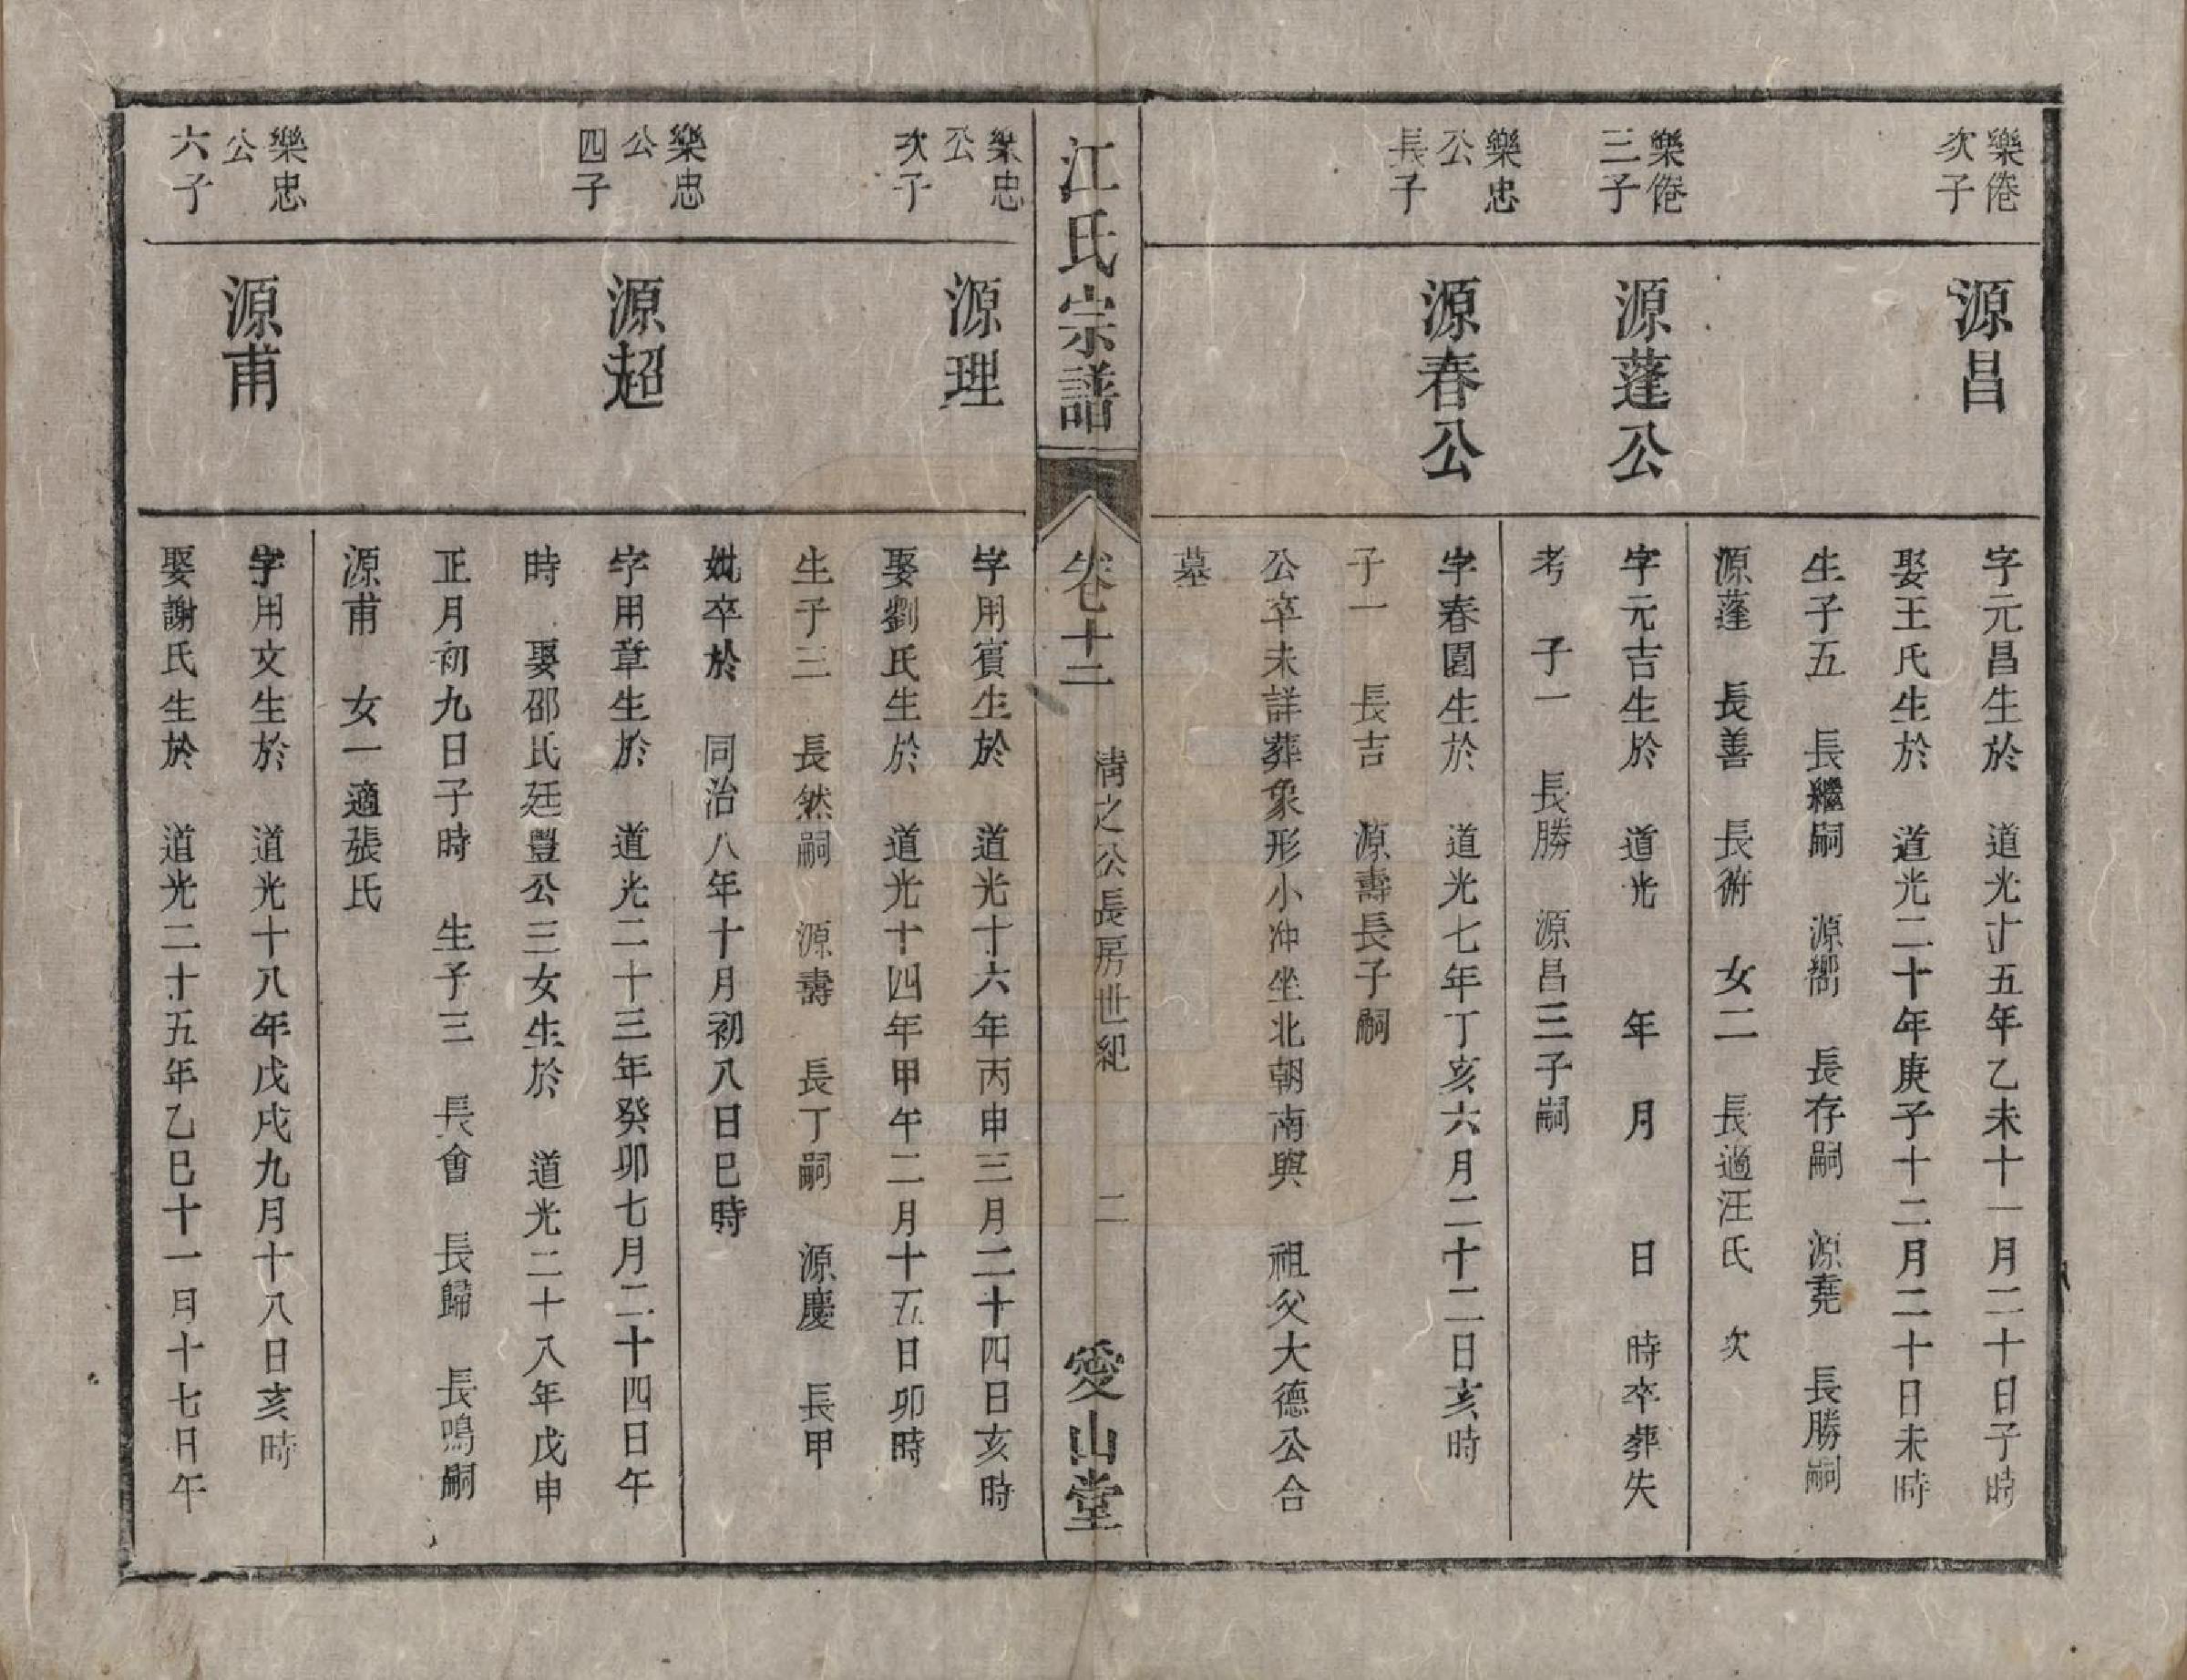 樂倦
次子
源昌
字元昌生於 道光十五年乙未十一月二十日子時
娶王氏生於 道光二十年庚子十二月二十日未時
生子五 長繼嗣 源嚮 長存嗣 源堯 長勝嗣
源蓬 長善 長術 女二 長適汪氏 次
樂倦
三子
源蓬公
字元吉生於 道光 年 月 日 時卒葬失
考 子一 長勝 源昌三子嗣
樂忠
公
長子
源春公
字春園生於 道光七年丁亥六月二十二日亥時
子一 長吉 源壽長子嗣
公卒未詳葬象形小冲坐北朝南與 祖父大德公合
墓
江氏宗譜
卷十二
清之公長房世紀
二
愛山堂
樂忠
公
次子
源理
字用賓生於 道光十六年丙申三月二十四日亥時
娶劉氏生於 道光十四年甲午二月十五日卯時
生子三 長然嗣 源壽 長丁嗣 源慶 長甲
妣卒於 同治八年十月初八日巳時
樂忠
公
四子
源超
字用章生於 道光二十三年癸卯七月二十四日午
時 娶邵氏廷豐公三女生於 道光二十八年戊申
正月初九日子時 生子三 長會 長歸 長鳴嗣
源甫 女一適張氏
樂忠
公
六子
源甫
字用文生於 道光十八年戊戌九月十八日亥時
娶謝氏生於 道光二十五年乙巳十一月十七日午